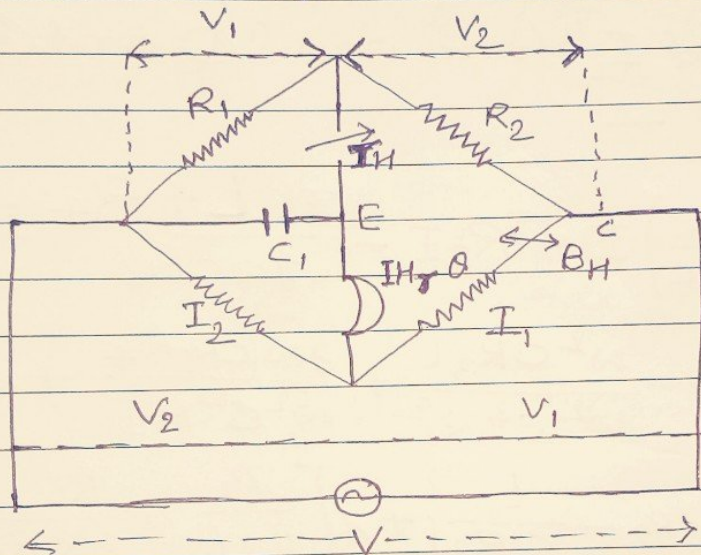 V1 V2
R1 R2
IH
E C
C1 BH
IHγ θ
I2 I1
V2 V1
V